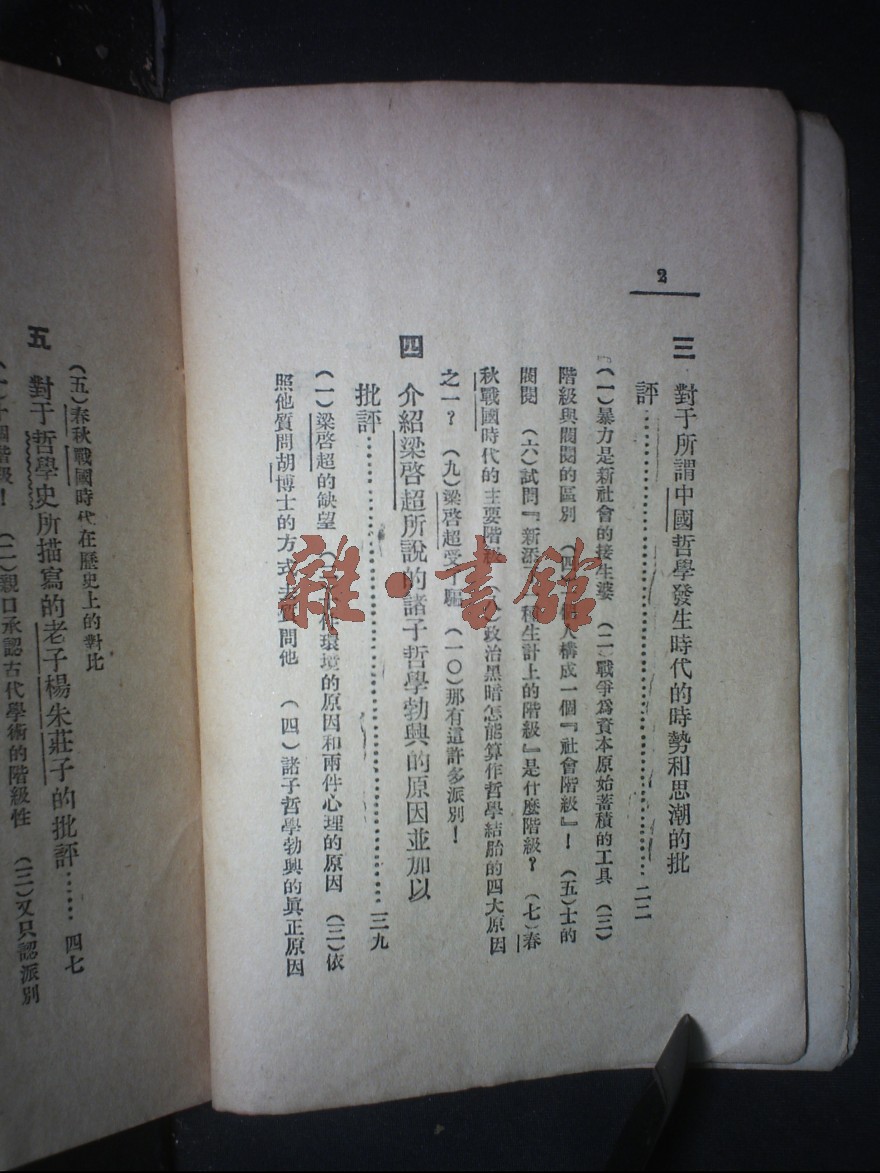 2
三 對于所謂中國哲學發生時代的時勢和思潮的批
評……二二
(一)暴力是新社會的接生婆 (二)戰爭爲資本原始蓄積的工具 (三)
階級與閥閱的區別 (四) 個人構成一個『社會階級』! (五)士的
閥閱 (六)試問『新添 種生計上的階級』是什麼階級? (七)春
秋戰國時代的主要階級 (八)政治黑暗怎能算作哲學結胎的四大原因
之一? (九)梁啓超受了騙 (一〇)那有這許多派別!
四 介紹梁啓超所說的諸子哲學勃興的原因並加以
批評……三九
(一)梁啓超的缺望 件環境的原因和兩件心理的原因 (三)依
照他質問胡博士的方式去質問他 (四)諸子哲學勃興的眞正原因
(五)春秋戰國時代在歷史上的對比
五 對于哲學史所描寫的老子楊朱莊子的批評……四七
(二)親口承認古代學術的階級性 (三)又只認派別
雜·書館